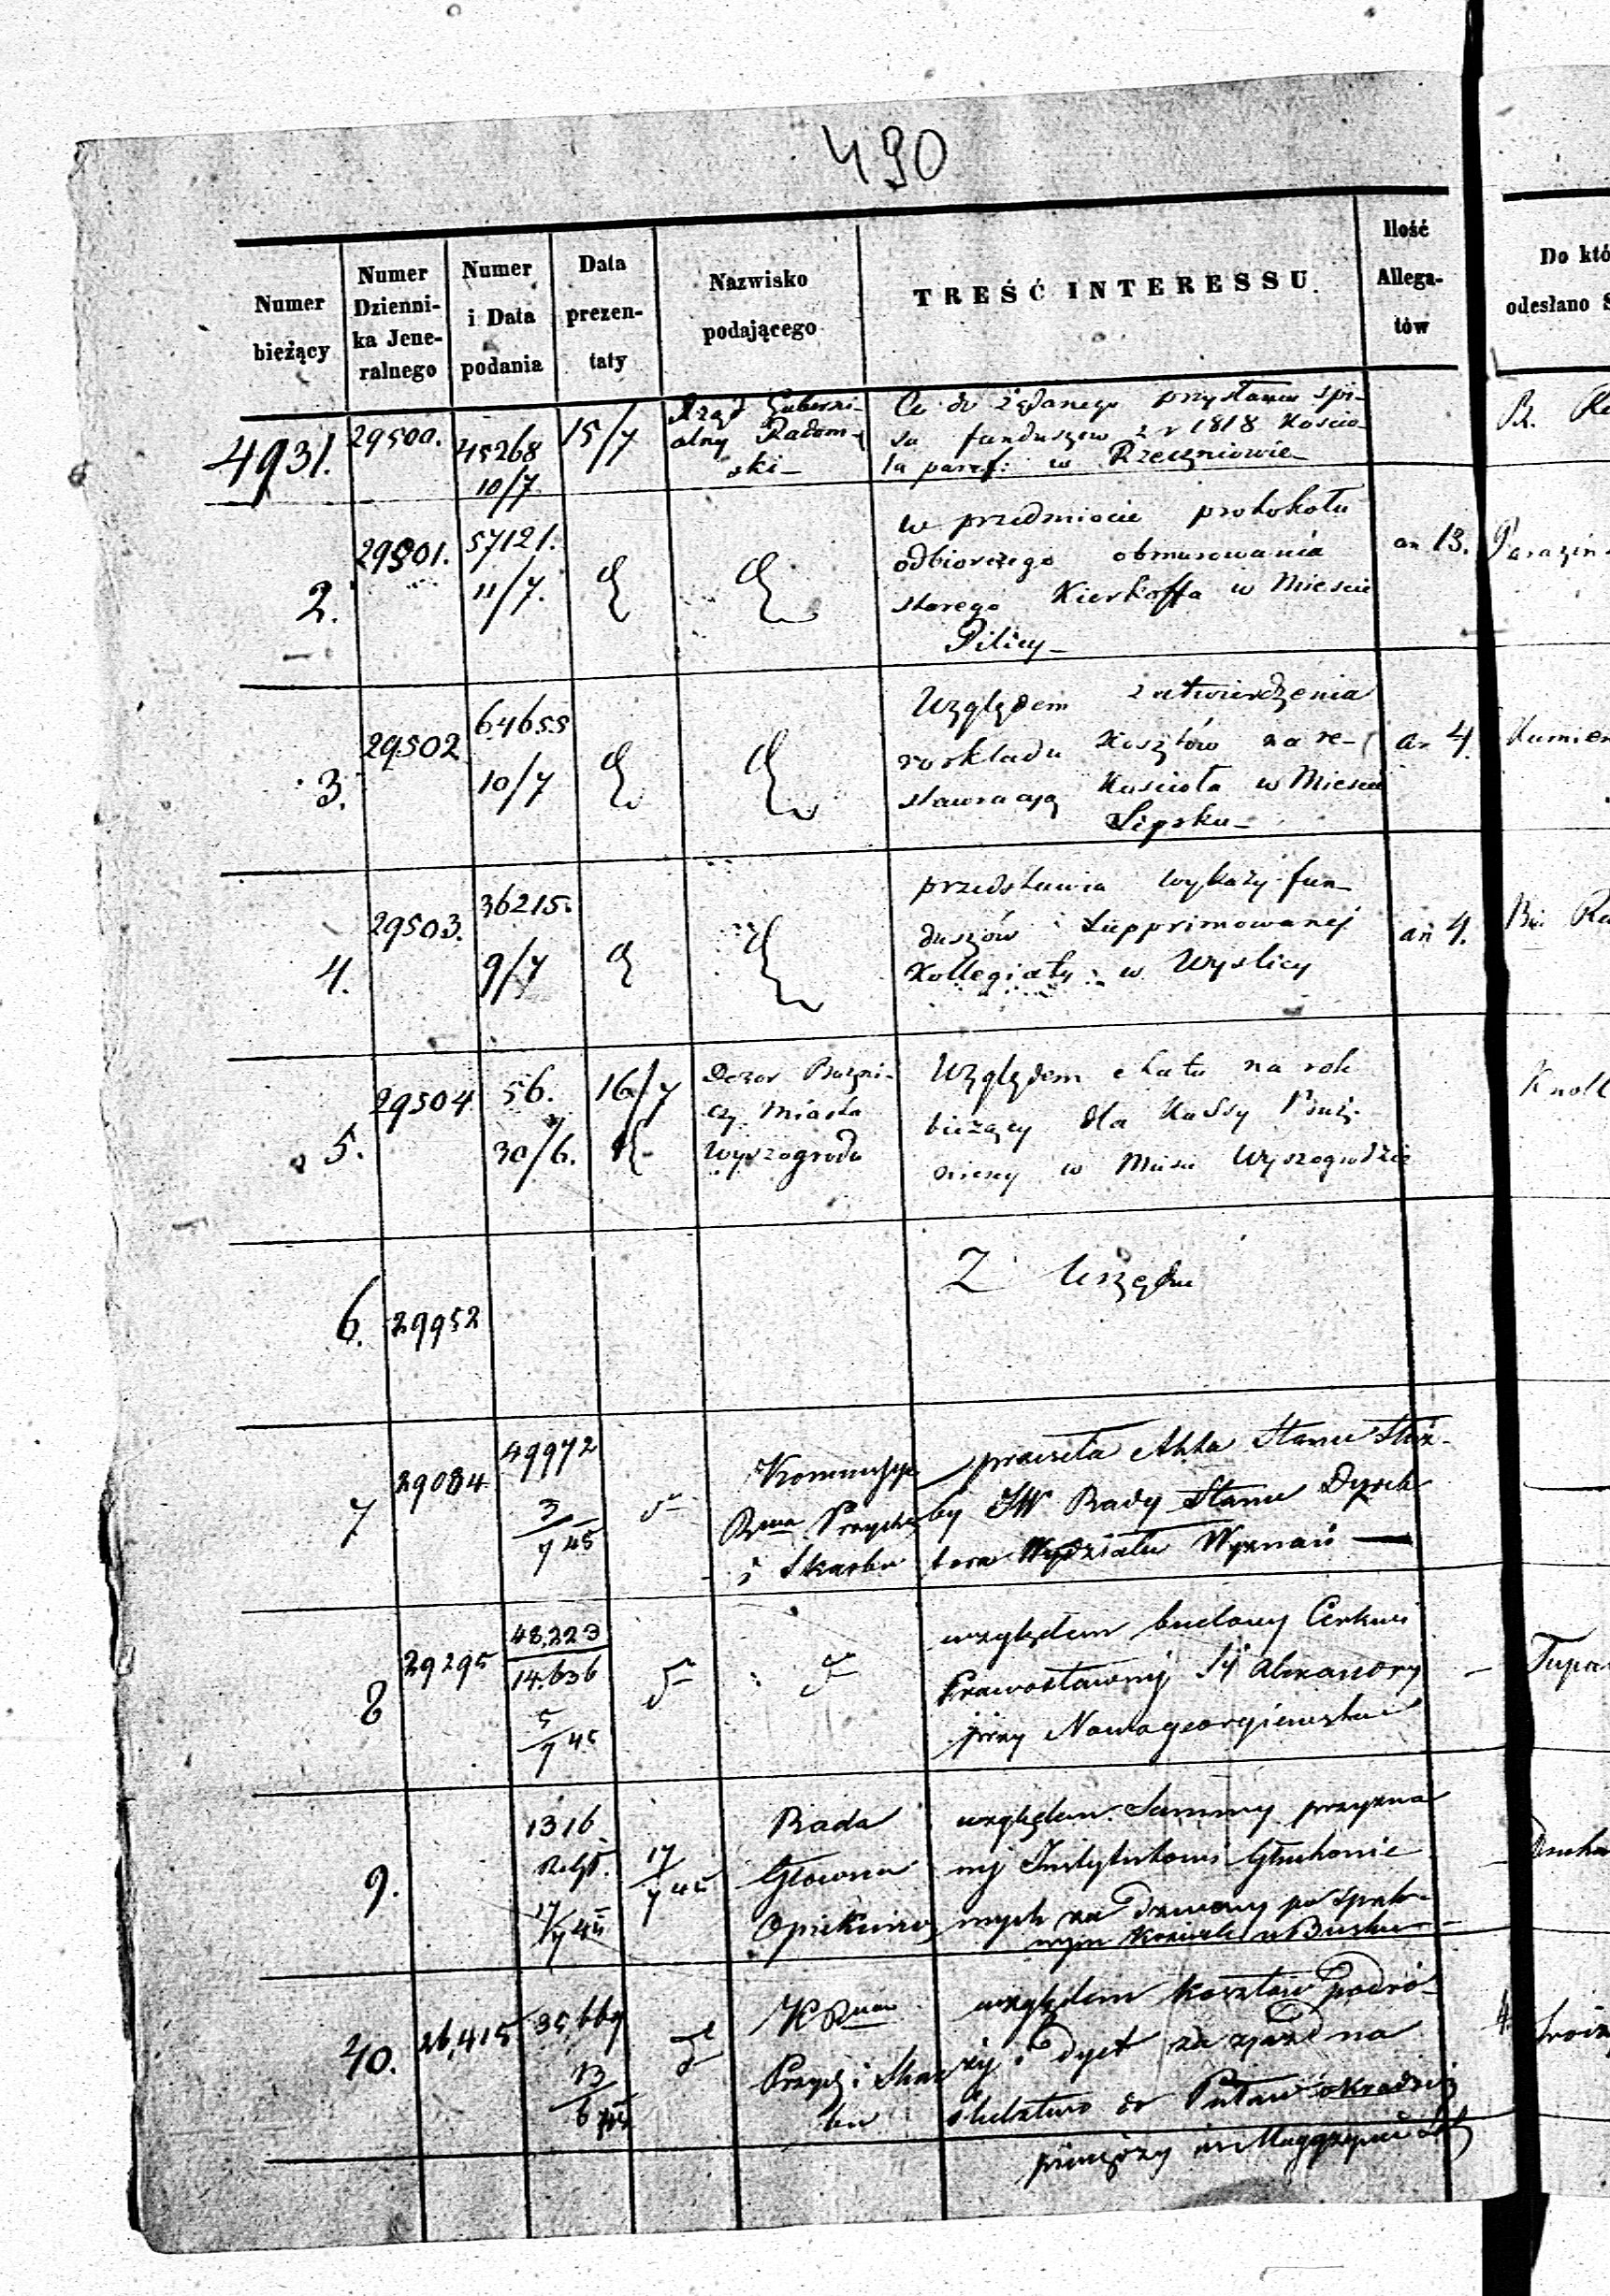 490
Numer bieżący
Numer Dzienni-ka Jene-ralnego
Numer i Data podania
Data prezen-taty
Nazwisko podającego
TREŚĆ INTERESSU.
Ilość Allega-tów
Do któ
odesłano S
4931.
29500.
45268
10/7.
15/7
Rząd Guberni-
alny Radom-
ski—
Co do żądanego przysłania spi-
su funduszów z r 1818 Kościo-
ła paraf: w Rzeczniowie—
2.
29501.
57121.
11/7.
W przedmiocie protokołu
odbiorczego obmurowania
starego Kierkoffa w Mieście
Pilicy—
an 13.
3.
29502
64655
10/7
Względem zatwierdzenia
rozkładu Kosztów na re-
stauracyą Kościoła w Mieście
Lipsku—
an 4.
4.
29503.
36215.
9/7
przedstawia wykazy fun-
duszów Supprimowanej
Kollegiaty w Wyślicy
an 4.
5.
29504
56.
30/6.
16/7
Dozor Bożni-
czy Miasta
Wyszogrodu
Względem etatu na rok
bieżący dla Kassy Bóż-
niczny w Mieście Wyszogrodzie
Knoll
6.
29952
Z Urzędu
7
29084
49972
3/7 45
Kommissya
Rwa Przych
i Skarbu
przesyła Akta Stanu Służ-
by JW Rady Stanu Dyrek
tora Wydziału Wyznań —
8
29295
48,223
14.636
5/7 45
względem budowy Cerkwi
Prawosławnej
przy Nowogeorgiewsku
9.
1316
17/7 45
17/7 45
Rada
Główna
Opiekuńcza
względem Summy przyzna
nej Instytutowi Głuchonie
mych za Dzwony po
w Busku
40.
26,415
35,669
13/6 45
K Rwa
Przych i Skar
bu
względem kosztów podró-
ży i dyet za zjazd na
śledztwo do Puław okradzi
pieniędzy w Magazynie